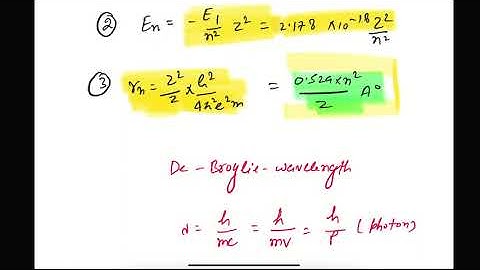 ② En = -E1/n² Z² = 2.178 ×10⁻¹⁸ Z²/n²
③ rn = Z²/Z × h²/4π²e²m = 0.529×n²/Z A°
De-Broglie-wavelength
λ = h/mc = h/mv = h/P (photon)